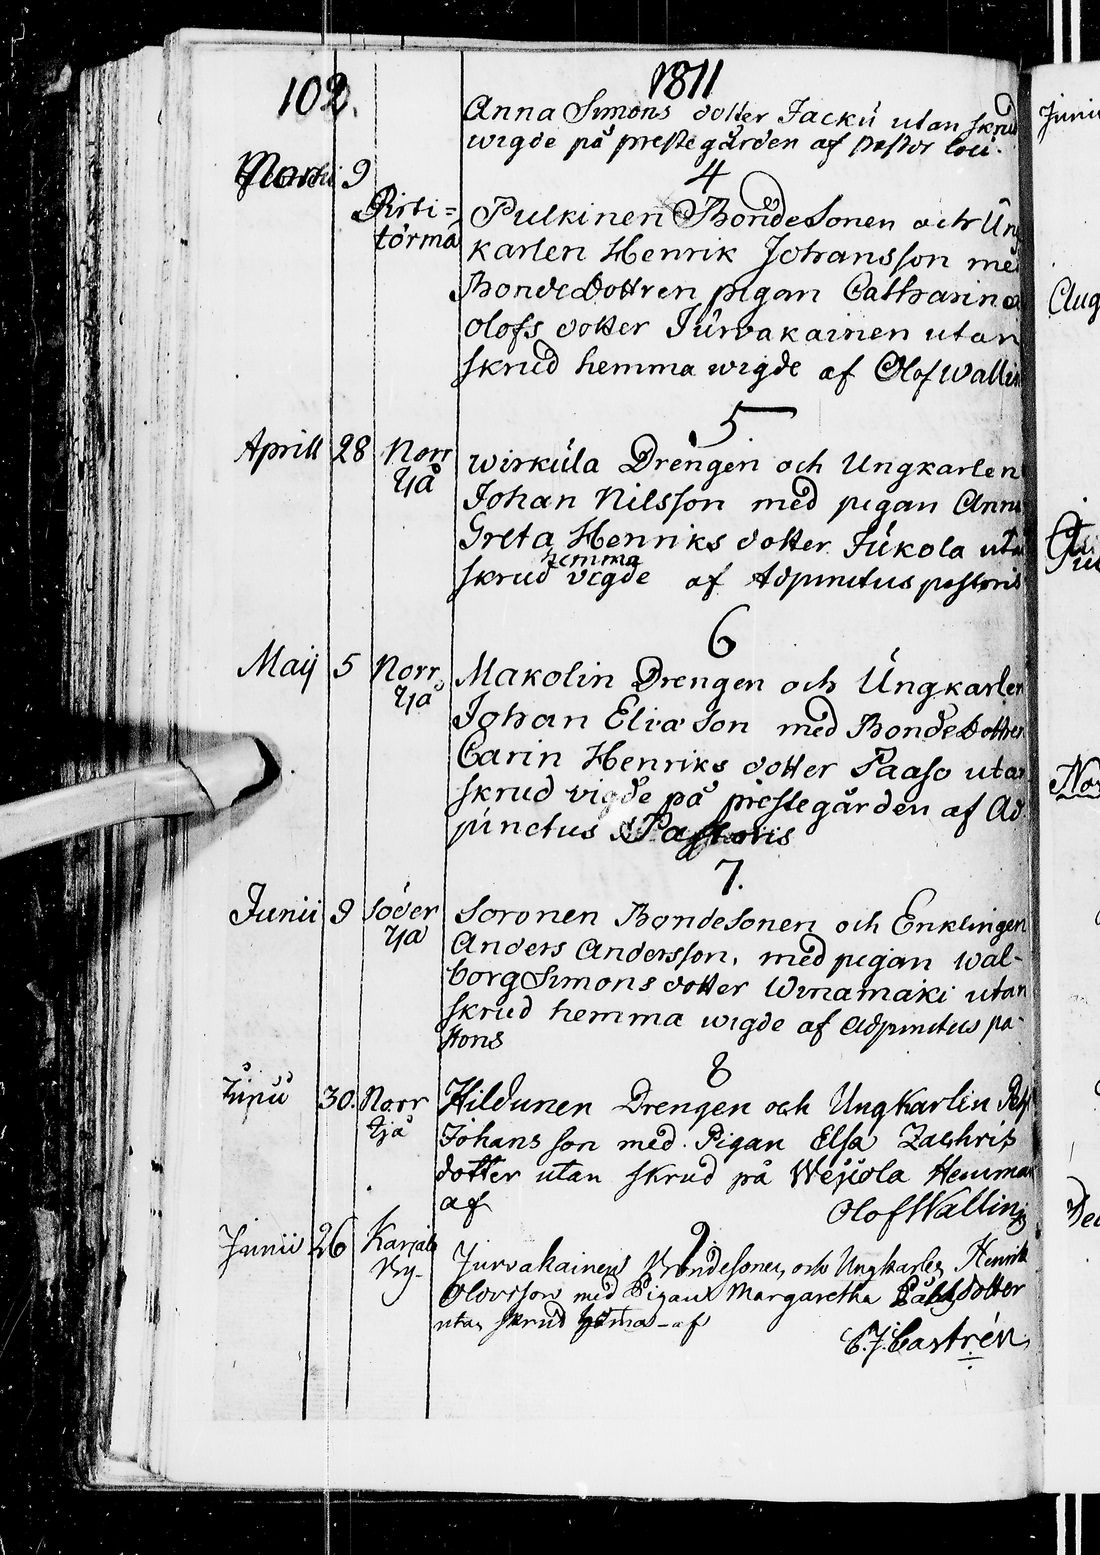 102.
1811
Anna Simons dotter Jackü utan skrud
wigde på prestegården af pastor loci.
4
Martii 9 Pirti=
törmä
Pulkinen BondeSonen och Ung
karlen Henrik Johansson med
BondeDottren pigan Catharina
Olofs dotter Jürvakainen utan
skrud hemma wigde af Olof Wallin
5
Aprill 28 Norr
Yjå
wirküla Drengen och Ungkarlen
Johan Nilsson med pigan Anna
Greta Henriks dotter Jükola utan
hemma
skrud vigde af Adpinctus pastoris
6
Maij 5 Norr
Yjå
Makolin Drengen och Üngkarlen
Johan Elia Son med BondeDottren
Carin Henriks dotter Paaso utan
skrud vigde på prestegården af Ad
pinctus Pastoris
7.
Junii 9 Söder
Yjå
Soronen BondeSonen och Enklingen
Anders Andersson, med pigan wal-
borg Simons dotter Winamäki utan
skrud hemma wigde af adpinctus pa-
storis
8
Junii 30. Norr
Yjå
Hildunen Drengen och UngKarlen
Johans son med Pigan Elsa Zachris
dotter utan skrud på Hemman
af Olof Walling
9.
Junii 26 Karjala
By-
Jurvakainen Bondesonen och Ungkarlen Henrik
Olovsson med Pigan Margaretha dotter
utan skrud hema - af
C.J. Castrén
Junii
Aug
Nov
Dec